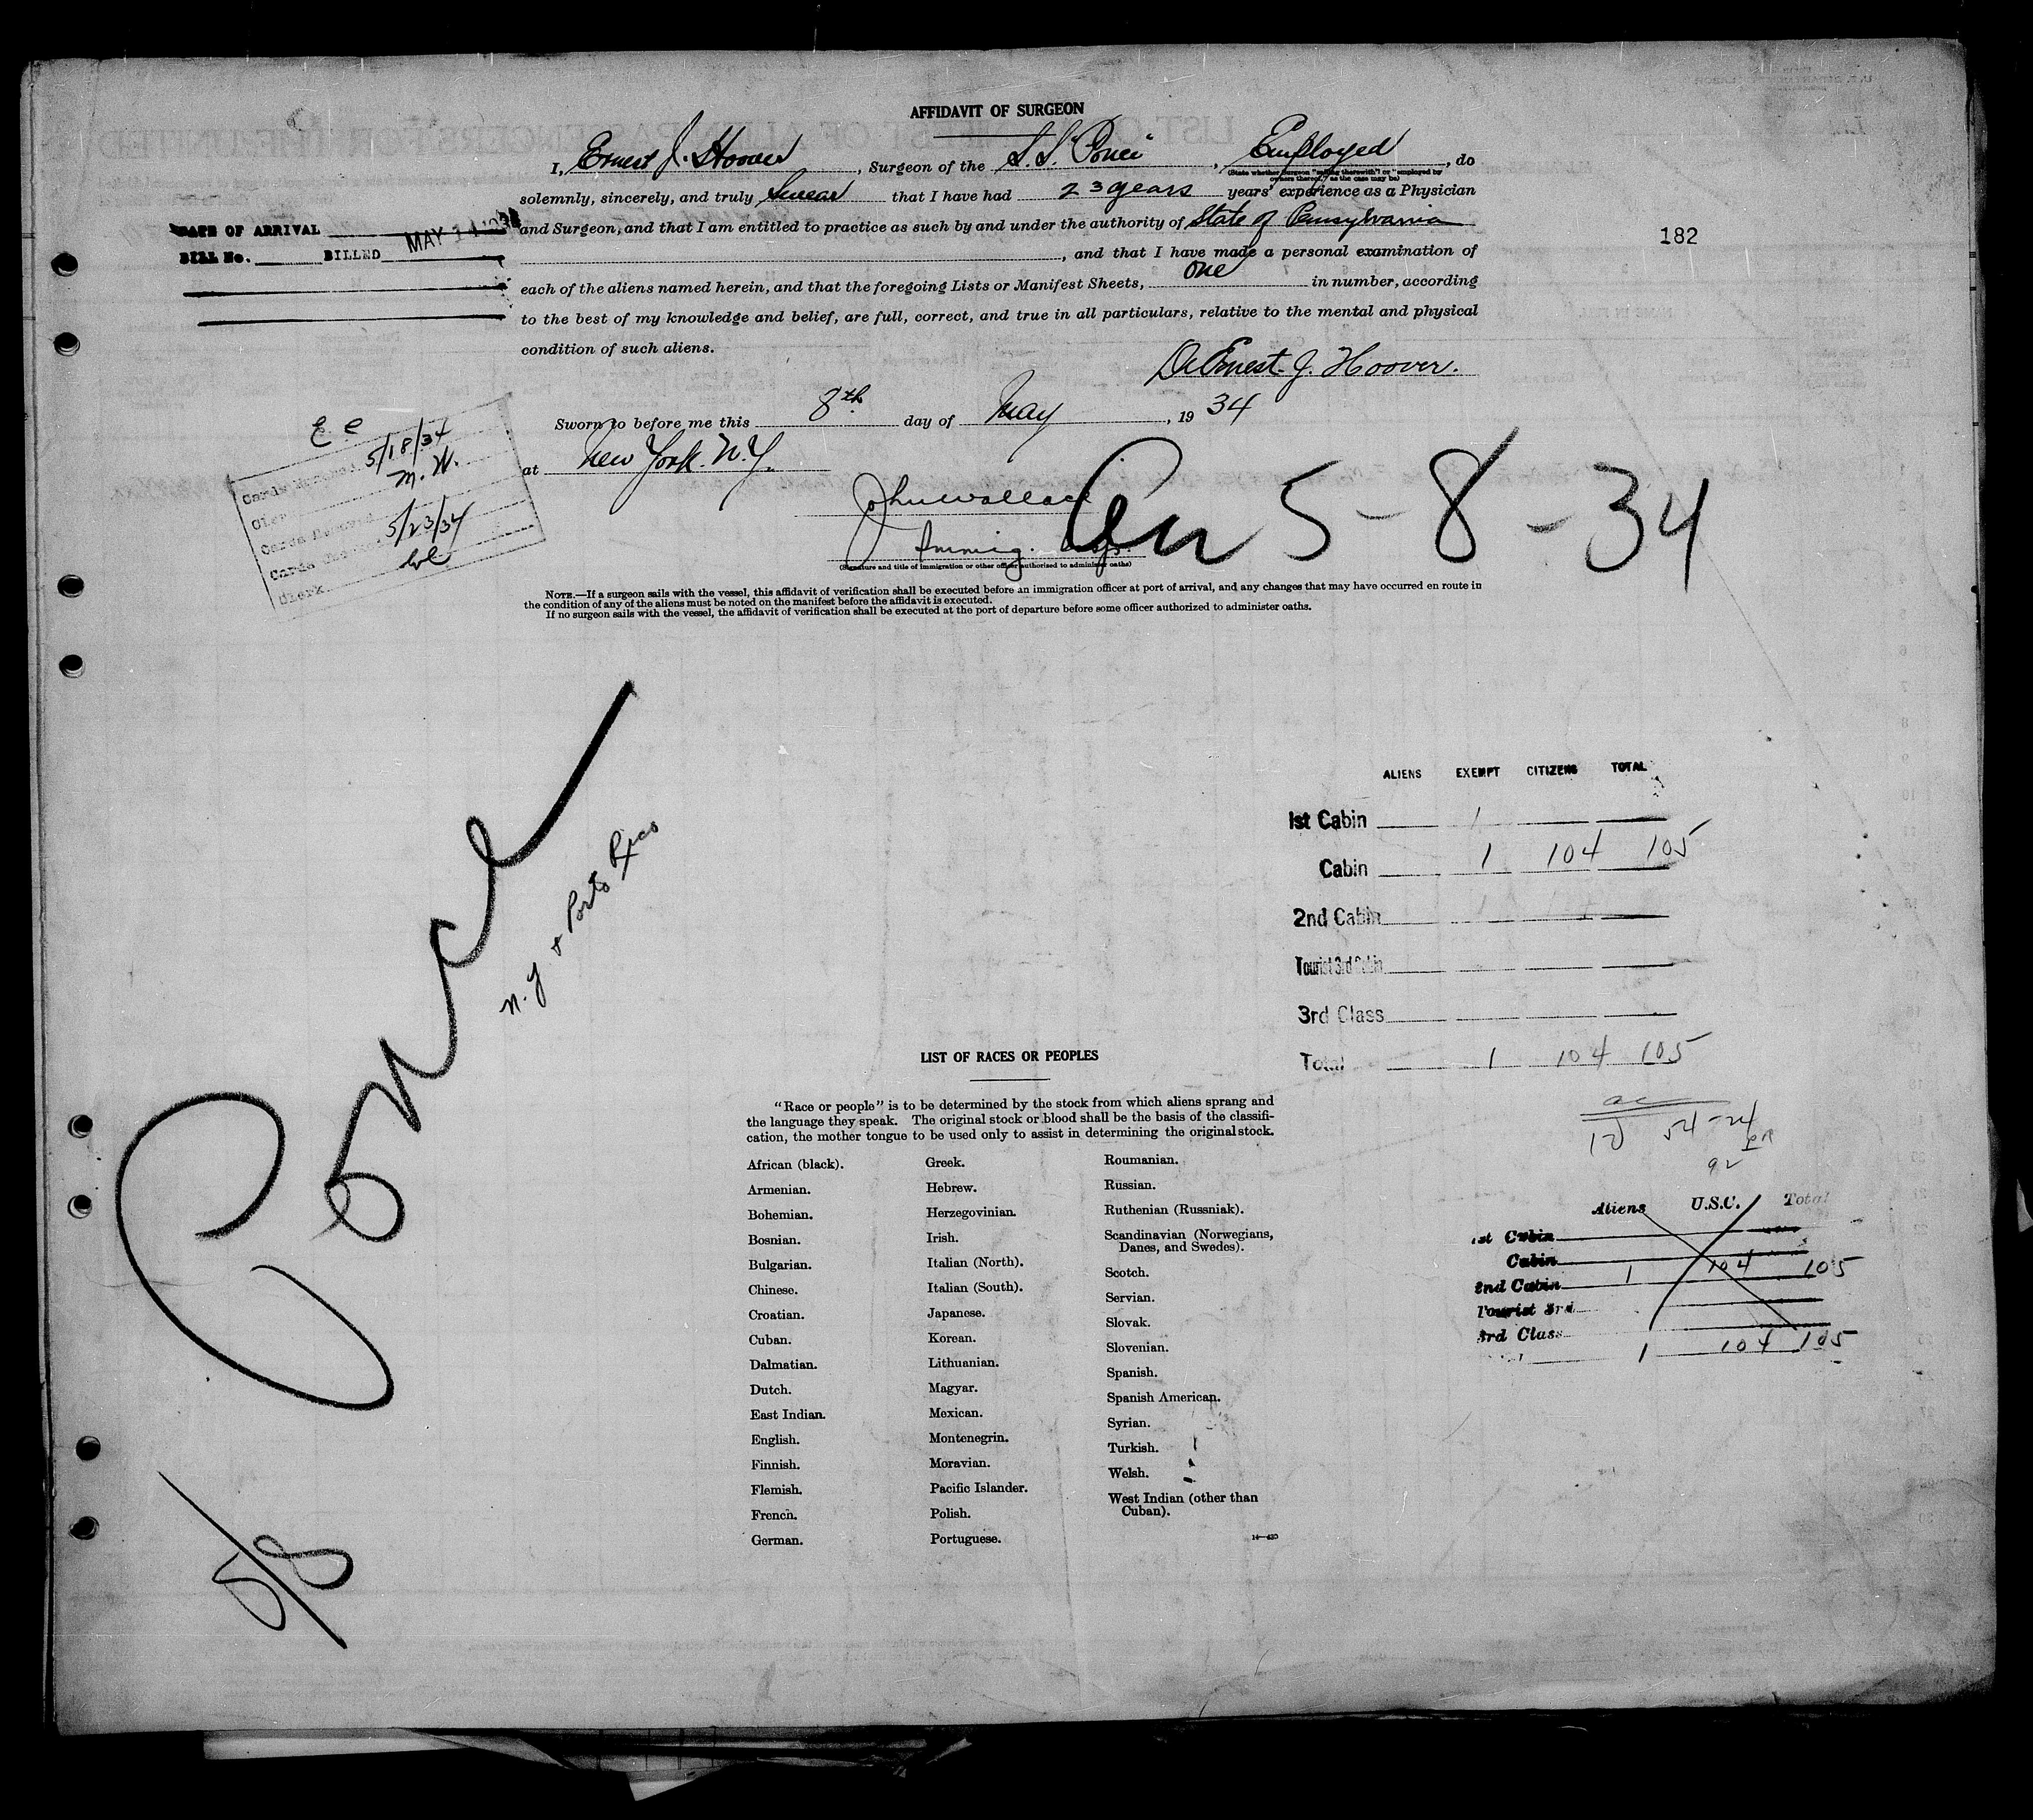 AFFIDAVIT OF SURGEON
I, Ernest J. Hoover, Surgeon of the S.S. "Ponce", Employed, do
(State whether Surgeon "sailing therewith" or "employed by
owners thereof," as the case may be)
solemnly, sincerely, and truly swear that I have had 23 years years' experience as a Physician
and Surgeon, and that I am entitled to practice as such by and under the authority of State of Pennsylvania
, and that I have made a personal examination of
each of the aliens named herein, and that the foregoing Lists or Manifest Sheets, one in number, according
to the best of my knowledge and belief, are full, correct, and true in all particulars, relative to the mental and physical
condition of such aliens.
Dr Ernest J. Hoover.
Sworn to before me this 8th day of May, 1934
at New York. N.Y.
John Wallace
Immig. Insp.
(Signature and title of immigration or other officer authorized to administer oaths)
NOTE.—If a surgeon sails with the vessel, this affidavit of verification shall be executed before an immigration officer at port of arrival, and any changes that may have occurred en route in
the condition of any of the aliens must be noted on the manifest before the affidavit is executed.
If no surgeon sails with the vessel, the affidavit of verification shall be executed at the port of departure before some officer authorized to administer oaths.
DATE OF ARRIVAL
BILL No. BILLED MAY 14
182
5/18/34
M. W.
5/23/34
Clerk
5-8-34
Ponce
N.Y. & Porto Rico
5/8
ALIENS EXEMPT CITIZENS TOTAL
1st Cabin
Cabin 1 104 105
2nd Cabin
Tourist 3rd Cabin
3rd Class
Total 1 104 105
Aliens U.S.C. Total
1st Cabin
Cabin 1 104 105
2nd Cabin
Tourist 3rd
3rd Class
1 104 105
LIST OF RACES OR PEOPLES
"Race or people" is to be determined by the stock from which aliens sprang and
the language they speak. The original stock or blood shall be the basis of the classifi-
cation, the mother tongue to be used only to assist in determining the original stock.
African (black).
Armenian.
Bohemian.
Bosnian.
Bulgarian.
Chinese.
Croatian.
Cuban.
Dalmatian.
Dutch.
East Indian.
English.
Finnish.
Flemish.
French.
German.
Greek.
Hebrew.
Herzegovinian.
Irish.
Italian (North).
Italian (South).
Japanese.
Korean.
Lithuanian.
Magyar.
Mexican.
Montenegrin.
Moravian.
Pacific Islander.
Polish.
Portuguese.
Roumanian.
Russian.
Ruthenian (Russniak).
Scandinavian (Norwegians,
Danes, and Swedes).
Scotch.
Servian.
Slovak.
Slovenian.
Spanish.
Spanish American.
Syrian.
Turkish.
Welsh.
West Indian (other than
Cuban).